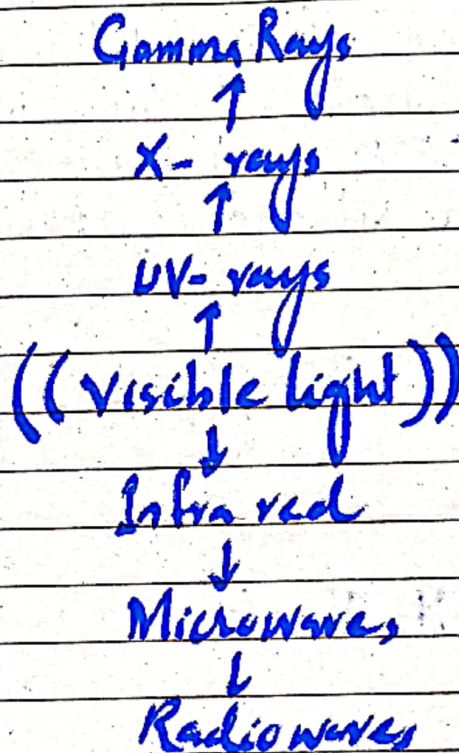 Gamma Rays
↑
X- rays
↑
UV- rays
↑
((Visible light))
↓
Infra red
↓
Microwaves
↓
Radiowaves